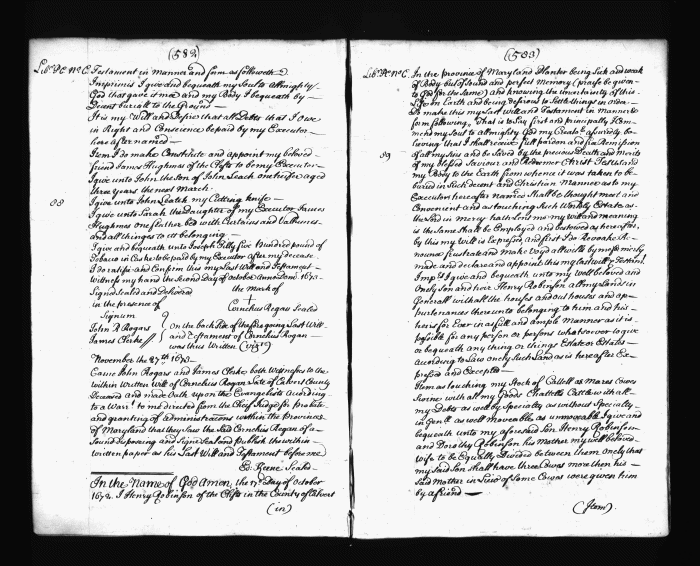 (582)
Lib.r P.C. No C. Testament in Manner and form as followeth
Imprimis I give and bequeath my Soul to Almighty
God that gave it me and my Body I bequeath by
Decent buriall to the Ground
It is my Will and Desire that all Debts that I owe
in Right and Conscience be paid by my Executor
hereafter named
Item I do make Constitute and appoint my beloved
friend James Hughmes of the Clifts to be my Executor
I give unto John the Son of John Leach one heifer aged
three years the next March
I give unto John Leatch my Cutting knife
I give unto Sarah the Daughter of my Executor James
Hughmes one feather bed with Curtains and Vallaines
and all things to itt belonging
I give and bequeath unto Joseph Tilly five hundred pound of
Tobacco in Caske to be paid by my Executor after my decease
I do ratifie and Confirm this my Last Will and Testament
Witness my hand the Second Day of October Anno Domi 1673
Signed Sealed and Delivered the mark of
in the presence of +
Signum Cornelius Regan Sealed
John R Rogars
James Clerke
on the back Side of the foregoing Last Will
and Testament of Cornelius Rogan
was thus Written (vizt)
November the 27th 1673
Came John Rogars and James Clerke both Witnesses to the
within Written Will of Cornelius Rogan Late of Calvert County
Deceased and made Oath upon the Evangelists According
to a Warrt to me directed from the Cheif Judge for probate
and granting of Administrations within the Province
of Maryland that they Saw the Said Cornelius Rogan of a
Sound Disposing and Signe Seal and publish the within
written paper as his Last Will and Testament before me
Ed. Keene Seald
In the Name of God Amen, the 17th Day of October
1672. I Henry Robinson of the Clifts in the County of Calvert
(in)
(583)
Lib.r P.C. No C. In the province of Maryland Planter being Sick and weak
of Body but of Sound and perfect Memory (praise be given
to God for the Same) and knowing the uncertainty of this
Life on Earth and being Desirous to Settle things in order
Do make this my Last Will and Testament in Manner &
form following, That is to Say first and principally I Com
mend my Soul to allmighty God my Creator assuredly be
lieving that I Shall receive full pardon and free Remission
of all my Sins and be Saved by the precious Death and Merits
of my blessed Saviour and Redeemer Christ Jesus and
my Body to the Earth from whence it was taken to be
buried in Such decent and Christian Manner as to my
Executors hereafter named Shall be thought meet and
Convenient and as touching Such Worldly Estate as
the Lord in Mercy hath Lent me my will and meaning
is the Same Shall be Employed and bestowed as hereafter
by this my will is Expressed, and first I Do Revoake Re
nounce frustrate and Make Voyd all wills by me formerly
made and declare and appoint this my last will & Testamt
Imp I give and bequeath unto my well beloved and
Onely Son and heir Henry Robinson all my Lands in
Generall with all the houses and out houses and ap
purtenances thereunto belonging to him and his
heirs for Ever in as full and ample Manner as it is
possible for any person or persons whatsoever to give
or bequeath any thing or things Estate or Estates
according to Law onely Such Land as is hereafter Ex
pressed and Excepted
Item as touching my Stock of Cattell as Mares Cowes
Swine with all my Goods Chattells Cattle with all
my Debts as well by Specialty as without Specialty
in Genll as well moveable as unmoveable I give and
bequeath unto my aforesaid Son Henry Robinson
and Dorothy Robinson his Mother my well beloved
wife to be Equally Divided between them onely that
my said Son Shall have three Cowes more then his
Said Mother in Lieu of Some Cowes were given him
by a friend
(Item)